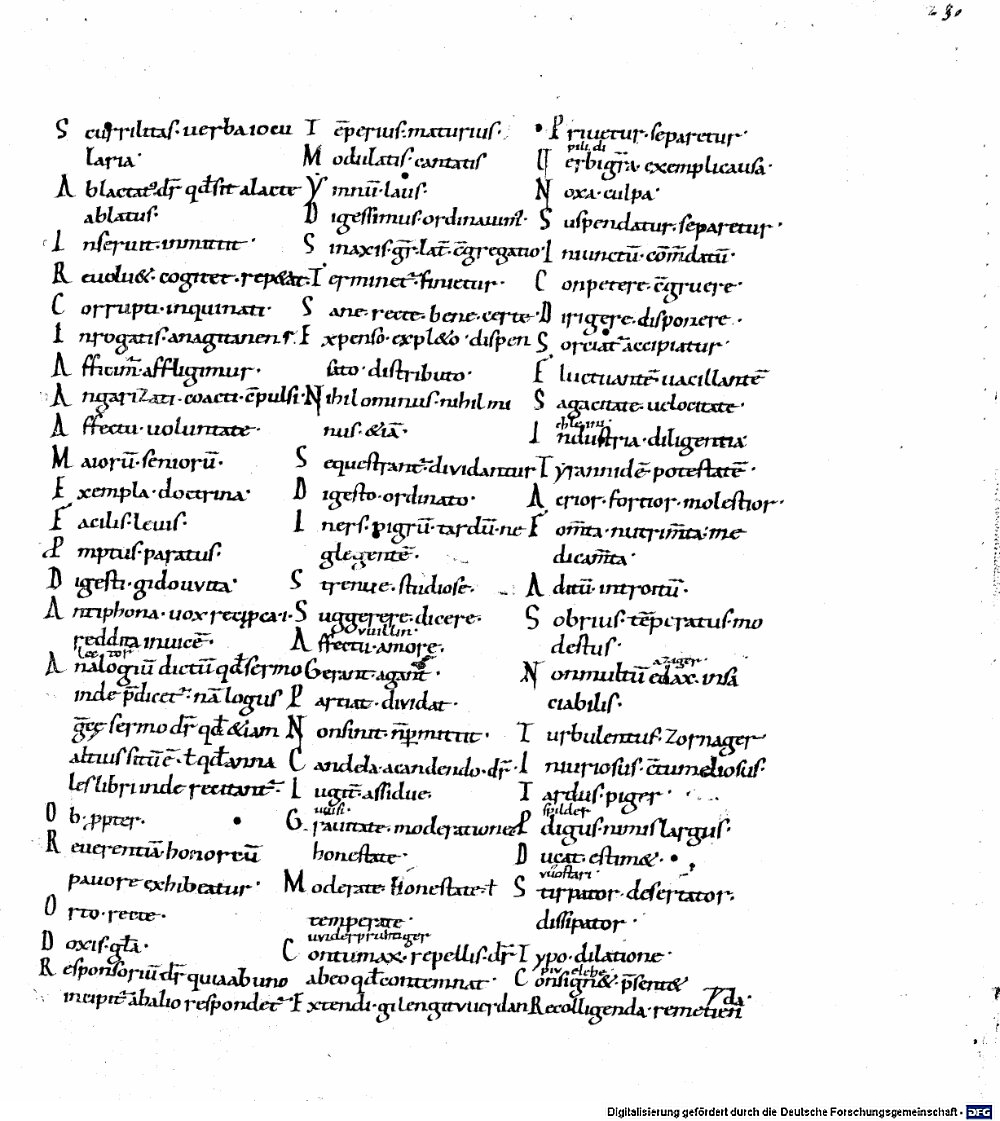 230
S currilitas. uerba iocu
laria.
A blactatꝰ dr̄ qđ sit a lacte
ablatus.
I nserunt. inmittit.
R euolu&. cogitet. repetat.
C orrupti. inquinati.
I nrogatis. anagitanen s.
A fficim̄. affligimur.
A ngarizati. coacti. c̄pulsi.
A ffectu. uoluntate.
M aiorū. seniorū.
E xempla. doctrina.
F acilis. leuis.
P mptus. paratus.
D igesti. gidouvita.
A ntiphona. uox recipca. i.
reddita inuicē.
lector
A nalogiū dictū qđ sermo
inde p̄dicet̄. nā logus
grec̄ sermo dr̄ qđ &iam
altius sitū ē. ł qđ anna
les libri inde recitant̄.
O b. ppter.
R euerentiā. honore cū
pauore exhibeatur.
O rto. recte.
D oxis. glā.
R esponsoriū dr̄ quia ab uno
incipit̄ ab alio respondet̄.
T ēperius. maturius.
M odulatis. cantatis
Y mnū. laus.
D igessimus. ordinauim̄.
S inaxis. gr̄. lat̄. c̄gregatio.
T erminet̄. finietur.
S ane. recte. bene. certe.
E xpenso. expl&o. dispen
sato. distributo.
N ihilominus. nihil mi
nus. &iā.
S equestrant̄. dividantur
D igesto. ordinato.
I ners. pigrū. tardū. ne
glegentē.
S trenue. studiose.
S uggerere. dicere.
vuillun
A ffectu. amore.
G erant. agant.
P artiat. dividat.
N on sinit. n̄ pmittit.
C andela. a candendo. dr̄.
I ugit̄. assidue.
G rauitate. moderatione
honestate.
M oderate. honestate. ł
temperate.
uviderpruhtiger
C ontumax. repellis. dr̄
ab eo qđ contemnat.
E xtendi. gilengit vuerdan
P riuetur. separetur.
pili di
U erbi grā. exempli causa.
N oxa. culpa.
S uspendatur. separetur.
I niunctū. com̄datū.
C onpetere. c̄gruere.
D irigere. disponere.
S orciat̄. accipiatur.
F luctuantē. uacillantē
S agacitate. uelocitate.
I ndustria. diligentia
T yrannidē. potestatē.
A crior. fortior. molestior.
F om̄ta. nutrim̄ta. me
dicam̄ta.
A ditū. introitū.
S obrius. tēperatus. mo
destus.
azager
N on multū edax. insa
ciabilis.
T urbulentus. zornager
I niuriosus. c̄tumeliosus.
T ardus. piger.
spilder
P digus. nimis largus.
D ucat. estim&.
vuostari
S tirpator. desertator.
dissipator.
T ypo. dilatione.
C onsign&. p̄sent&
da.
Recolligenda. remetieri
Digitalisierung gefördert durch die Deutsche Forschungsgemeinschaft - DFG